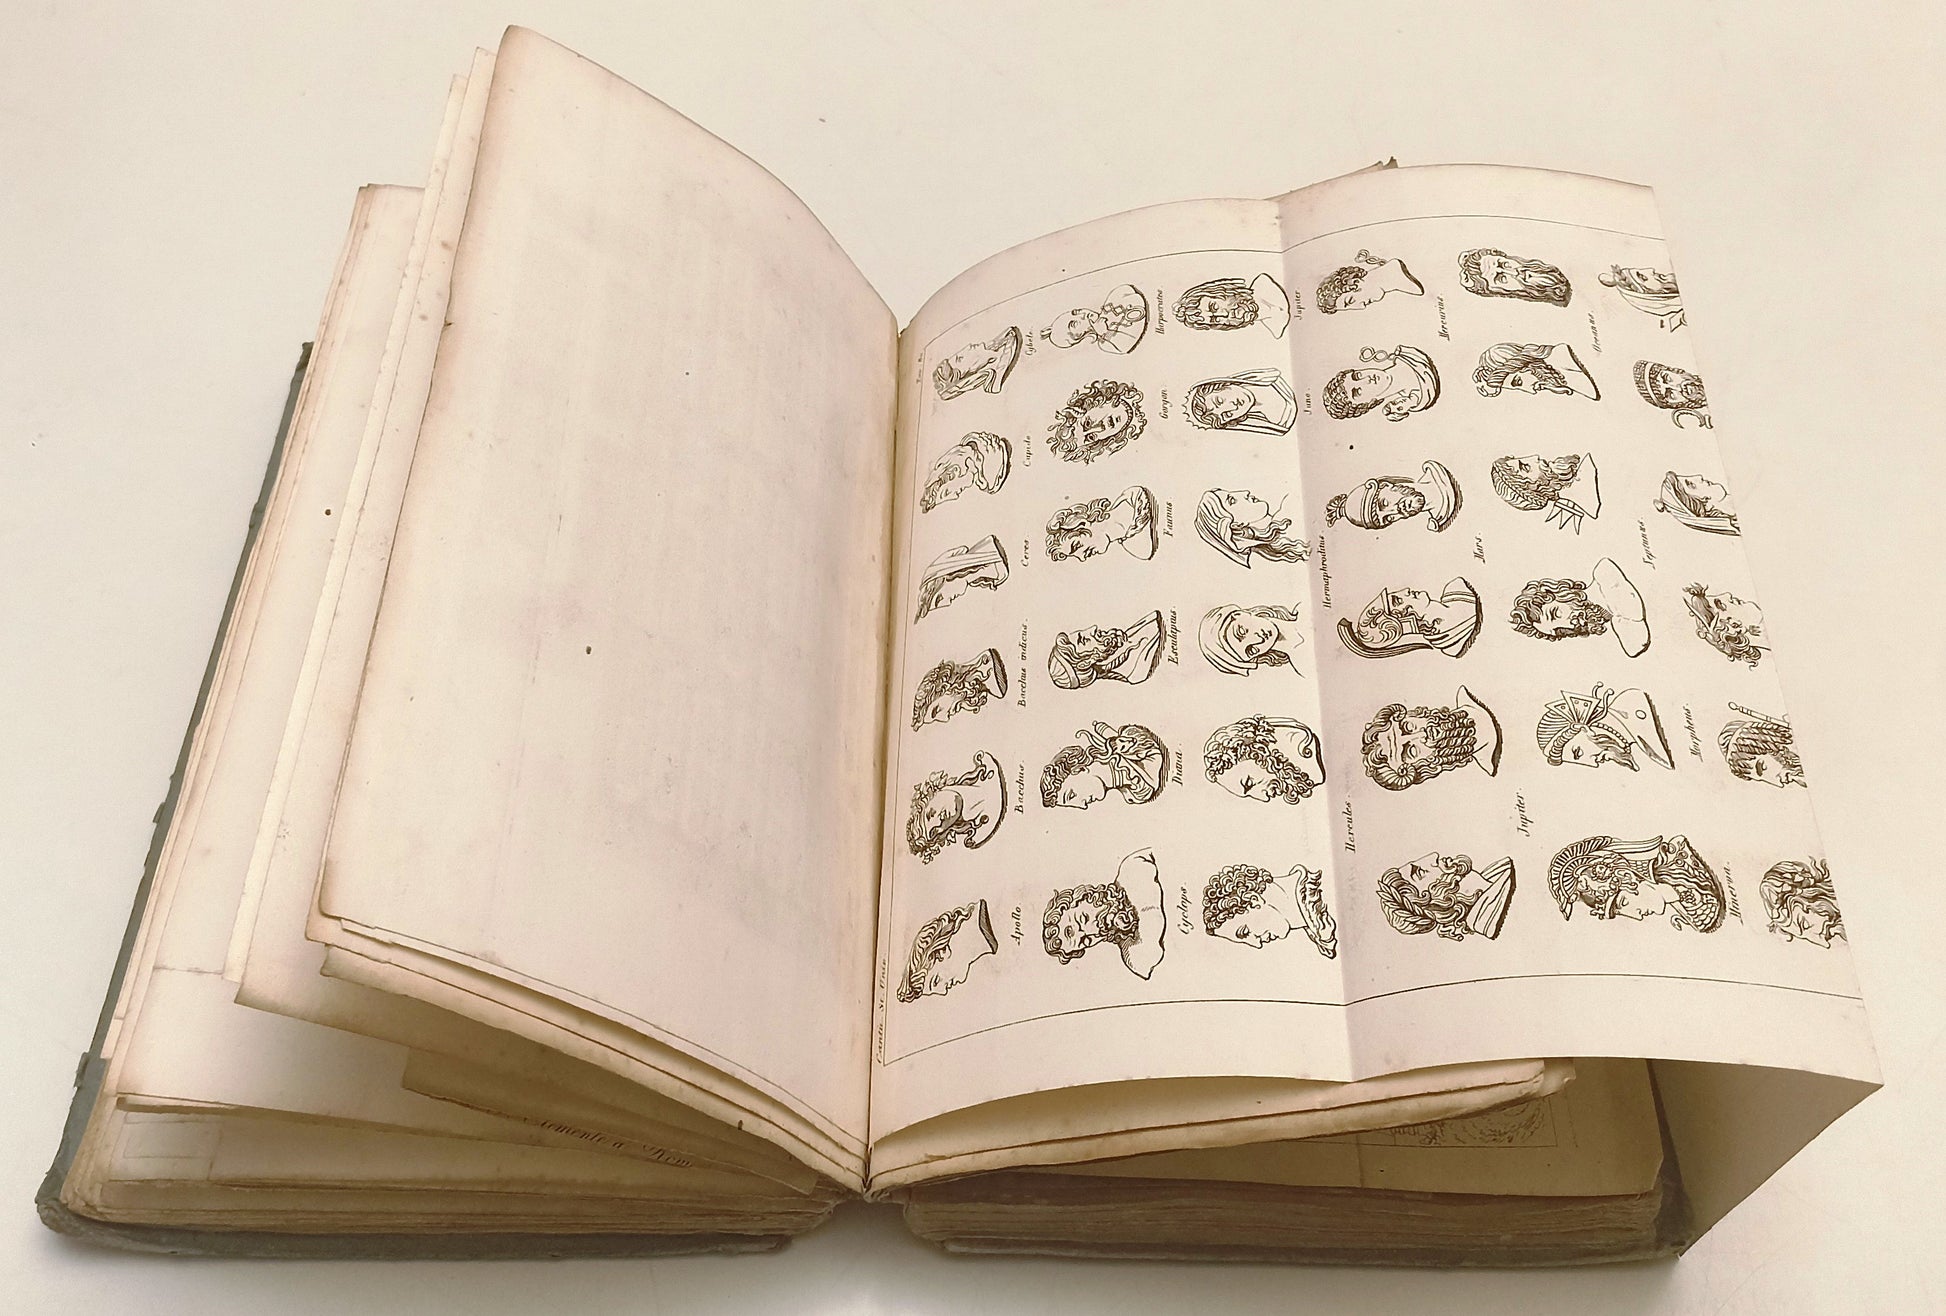 Cantù St. Univ.
Apollo. Bacchus. Bacchus indicus. Ceres. Cupido Cybele.
Cyclops. Diana. Esculapius. Faunus Gorgon. Harpocrates.
Hercules. Hermaphroditus Juno. Jupiter
Jupiter. Mars. Mercurius.
Minerva. Morpheus. Neptunus. Oceanus.